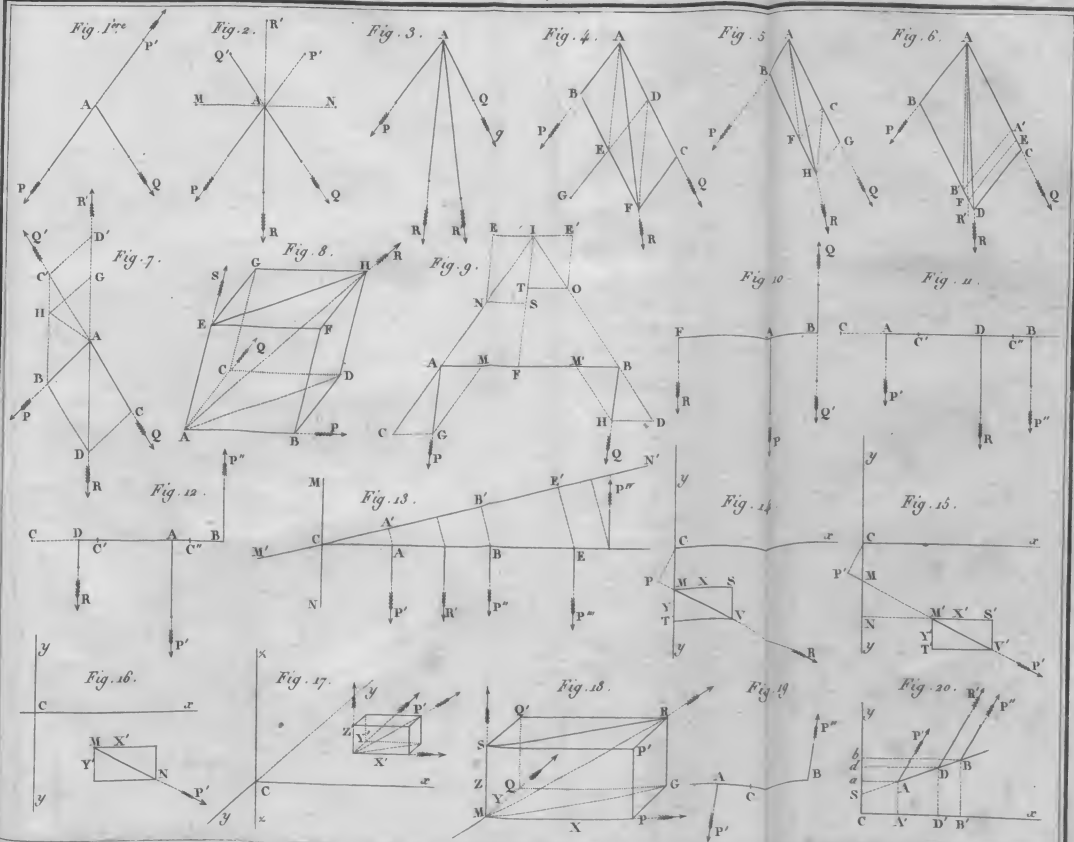 Fig. 1ère
P'
A
P
Q
Fig. 2.
R'
Q'
P'
M
A
N
P
Q
R
Fig. 3.
A
P
Q
q
R
R'
Fig. 4.
A
B
D
P
E
C
G
Q
F
R
Fig. 5
A
B
C
P
F
G
H
Q
R
Fig. 6.
A
B
A'
P
E
C
B'
F
D
R'
Q
R
Fig. 7.
R'
Q'
D'
C'
G
H
A
B
P
C
D
Q
R
Fig. 8
S
G
H
R
E
F
Q
C
D
A
B
P
Fig. 9.
E
I
E'
T
O
N
S
A
M
F
M'
B
C
G
H
D
P
Q
Fig. 10
Q
F
A
B
R
Q'
P
Fig. 11.
C
A
C'
D
C"
B
P'
R
P"
Fig. 12.
P"
C
D
C'
A
C"
B
R
P'
Fig. 13.
M
N'
E'
P^IV
B'
A'
M'
C
A
B
E
N
P'
R'
P"
P'''
Fig. 14
y
C
x
P
M
X
S
Y
T
V
y
R
Fig. 15.
y
C
x
P'
M
N
M'
X'
S'
Y'
T
V'
y
P'
Fig. 16.
y
C
x
M
X'
Y'
N
P'
y
Fig. 17.
x
y
P'
Z
Y'
X'
C
x
y
x
Fig. 18.
Q'
R
S
P'
Z
Q
G
Y
M
X
P
Fig. 19
P"
A
C
B
P'
Fig. 20.
y
R'
P"
P'
b
d
a
D
B
S
A
C
A'
D'
B'
x